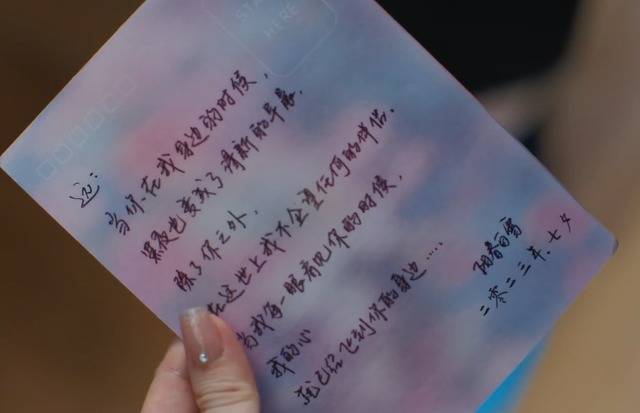 STAMP HERE
远:
当你在我身边的时候,
黑夜也变成了清新的早晨.
除了你之外,
在这世上我不企望任何的伴侣.
当我每一眼看见你的时候,
我的心
就已经飞到你的身边....
阳春白雪
二零二三年.七夕